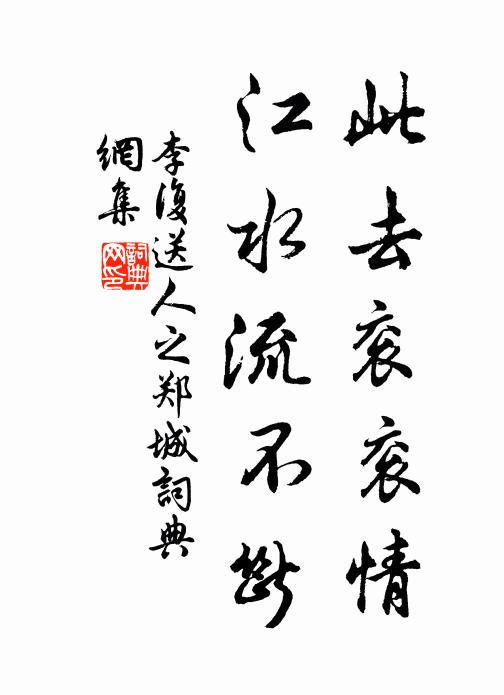 此去衮衮情
江水流不断
李復送人之郑城詞典
網集
詞典
网印